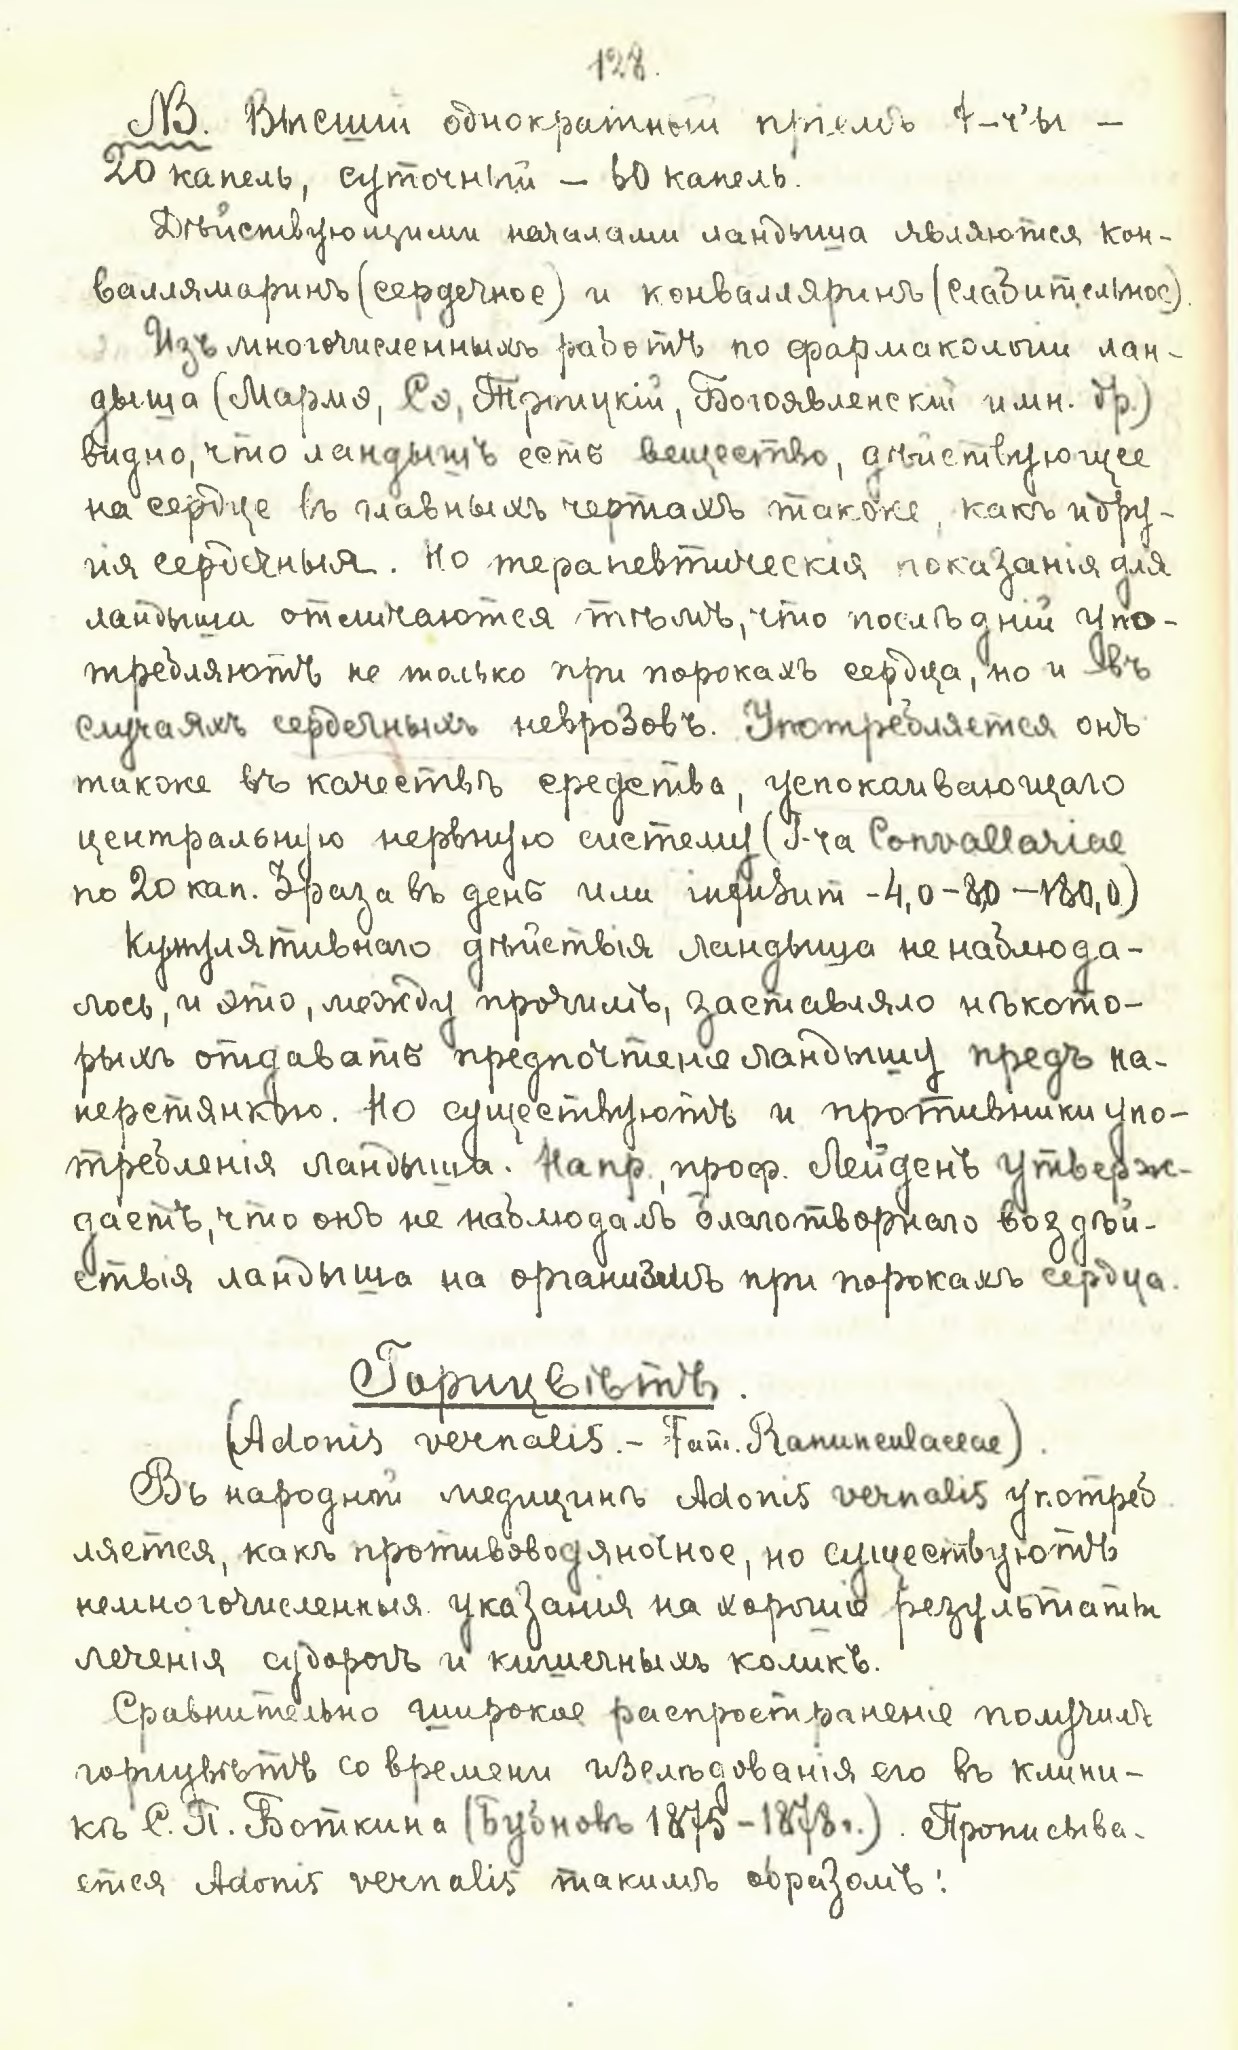 128.
NB. Высшій однократный пріемъ t-ч'ы —
20 капель, суточный — 60 капель.
Дѣйствующими началами ландыша являются кон-
валлямаринъ (сердечное) и конвалляринъ (слабительное).
Изъ многочисленныхъ работъ по фармакологіи лан-
дыша (Мармэ, Сэ, Троицкій, Богоявленскій и мн. др.)
видно, что ландышъ есть вещество, дѣйствующее
на сердце въ главныхъ чертахъ также, какъ и дру-
гія сердечныя. Но терапевтическія показанія для
ландыша отличаются тѣмъ, что послѣдній упо-
требляютъ не только при порокахъ сердца, но и въ
случаяхъ сердечныхъ неврозовъ. Употребляется онъ
также въ качествѣ средства, успокаивающаго
центральную нервную систему (T-ra Convallariae
по 20 кап. 3 раза въ день или infusum -4,0-8,0-180,0)
Кумулятивнаго дѣйствія ландыша не наблюда-
лось, и это, между прочимъ, заставляло нѣкото-
рыхъ отдавать предпочтеніе ландышу предъ на-
перстянкою. Но существуютъ и противники упо-
требленія ландыша. Напр., проф. Лейденъ утверж-
даетъ, что онъ не наблюдалъ благотворнаго воздѣй-
ствія ландыша на организмъ при порокахъ сердца.
Горицвѣтъ.
(Adonis vernalis. - Fam. Ranunculaceae).
Въ народной медицинѣ Adonis vernalis употреб
ляется, какъ противоводяночное, но существуютъ
немногочисленныя указанія на хорошіе результаты
леченія судорогъ и кишечныхъ коликъ.
Сравнительно широкое распространеніе получилъ
горицвѣтъ со времени изслѣдованія его въ клини-
кѣ С. П. Боткина (Бубновъ 1875-1878г.). Прописыва-
ется Adonis vernalis такимъ образомъ: